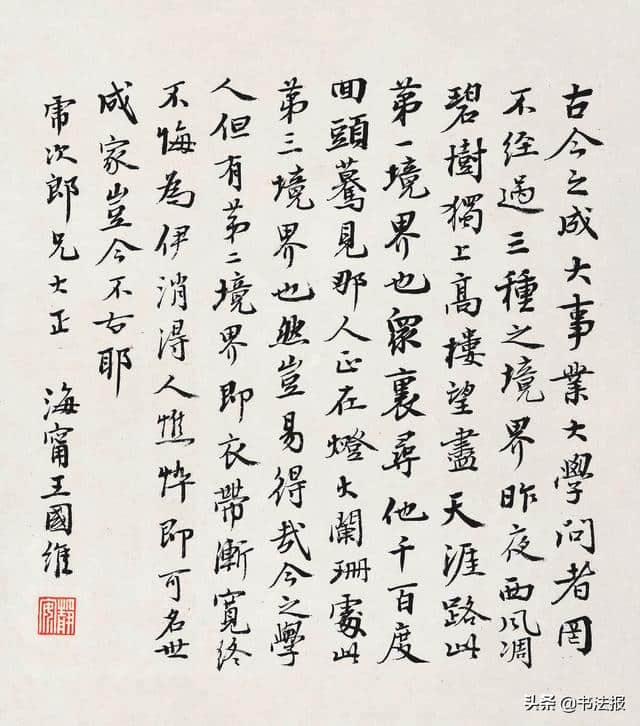 古今之成大事業大學問者罔
不經過三種之境界昨夜西風凋
碧樹獨上高樓望盡天涯路此
第一境界也眾裏尋他千百度
回頭驀見那人正在燈火闌珊處此
第三境界也然豈易得哉今之學
人但有第二境界即衣帶漸寬終
不悔為伊消得人憔悴即可名世
成家豈今不古耶
帍次郎兄大正
海甯王國維
靜安
头条 @书法报